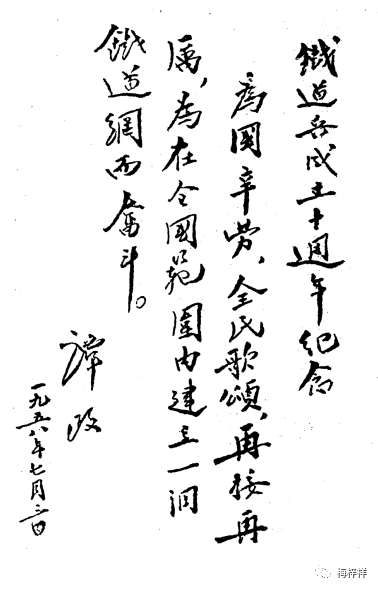 鐵道兵成立十週年紀念
為國辛勞，全民歌頌，再接再
厲，為在全國範圍内建立一個
鐵道網而奮斗。
譚政
一九五八年七月三日
梅梓祥